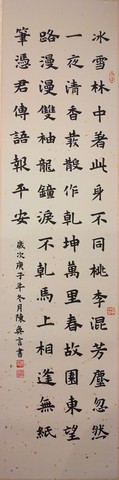 冰雪林中著此身不同桃李混芳塵忽然
一夜清香發散作乾坤萬里春故園東望
路漫漫雙袖龍鐘淚不乾馬上相逢無紙
筆憑君傳語報平安
歲次庚子年冬月陳奕言書